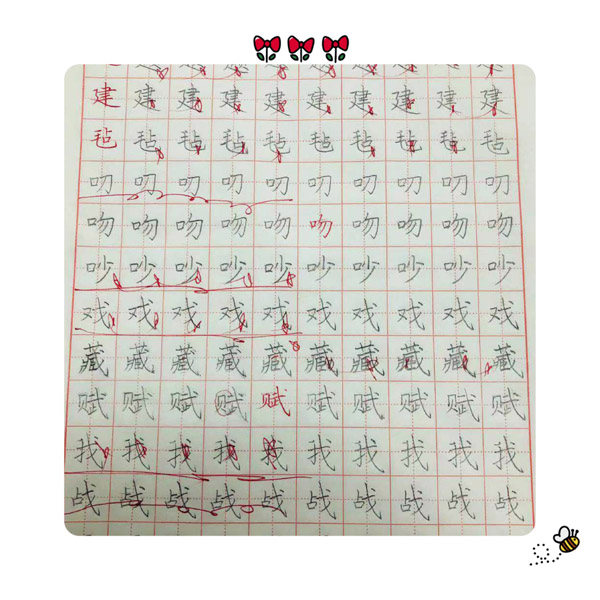 建建建建建建建建建建
毡毡毡毡毡毡毡毡毡毡
吻吻吻吻吻吻吻吻吻吻
吵吵吵吵吵吵吵吵吵吵
戏戏戏戏戏戏戏戏戏戏
藏藏藏藏藏藏藏藏藏藏
赋赋赋赋赋赋赋赋赋赋
找找找找找找找找找找
战战战战战战战战战战